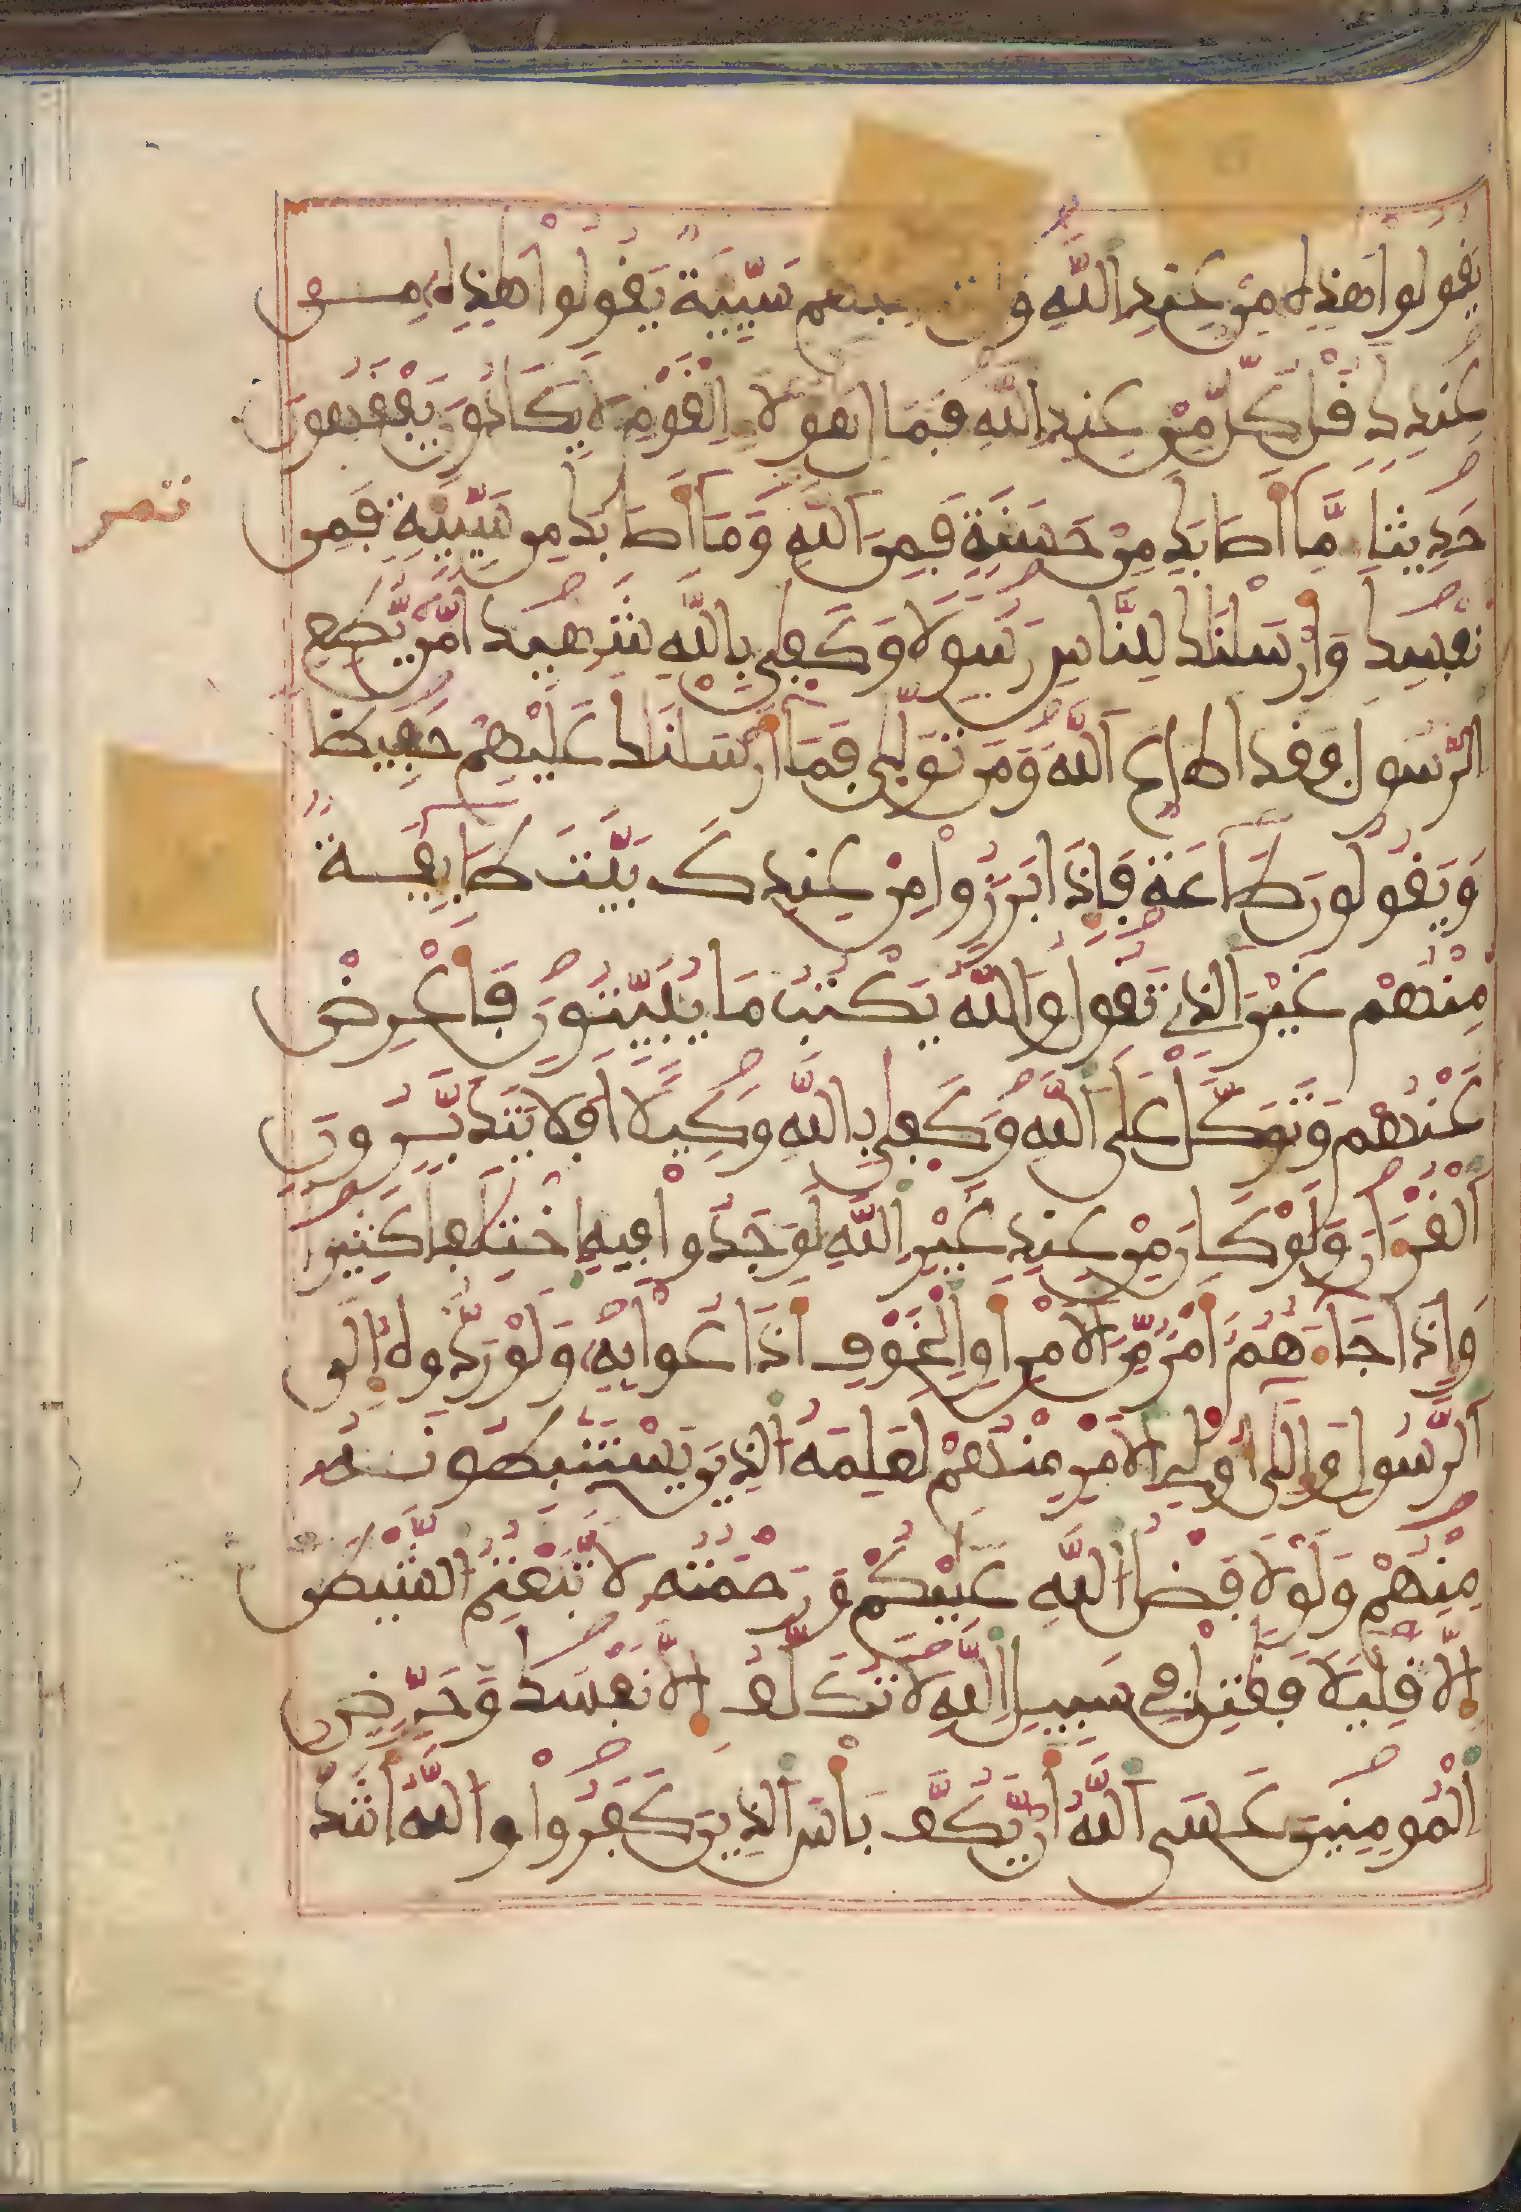 يقولوا هذه من عند الله و تصبهم سيية يقولوا هذه من
عندك قل كل من عند الله فمال هؤلا القوم لا يكادون يفقهون
حديثا ما أصابك من حسنة فمن الله وما أصابك من سيية فمن
نفسك وأرسلنك للناس رسولا وكفى بالله شهيدا من يطع
الرسول فقد اطاع الله ومن تولى فما أرسلنك عليهم حفيظا
ويقولون طاعة فإذا برزوا من عندك بيت طايفة
منهم غير الذي تقول والله يكتب ما يبيتون فأعرض
عنهم وتوكل على الله وكفى بالله وكيلا افلا يتدبرون
القرءان ولو كان من عند غير الله لوجدوا فيه اختلفا كثيرا
وإذا جاءهم أمر من الأمن أو الخوف أذاعوا به ولو ردوه إلى
الرسول وإلى أولي الأمر منهم لعلمه الذين يستنبطونه
منهم ولولا فضل الله عليكم ورحمته لاتبعتم الشيطن
إلا قليلا فقتل في سبيل الله لا تكلف إلا نفسك وحرض
المومنين عسى الله أن يكف بأس الذين كفروا والله أشد
نصر